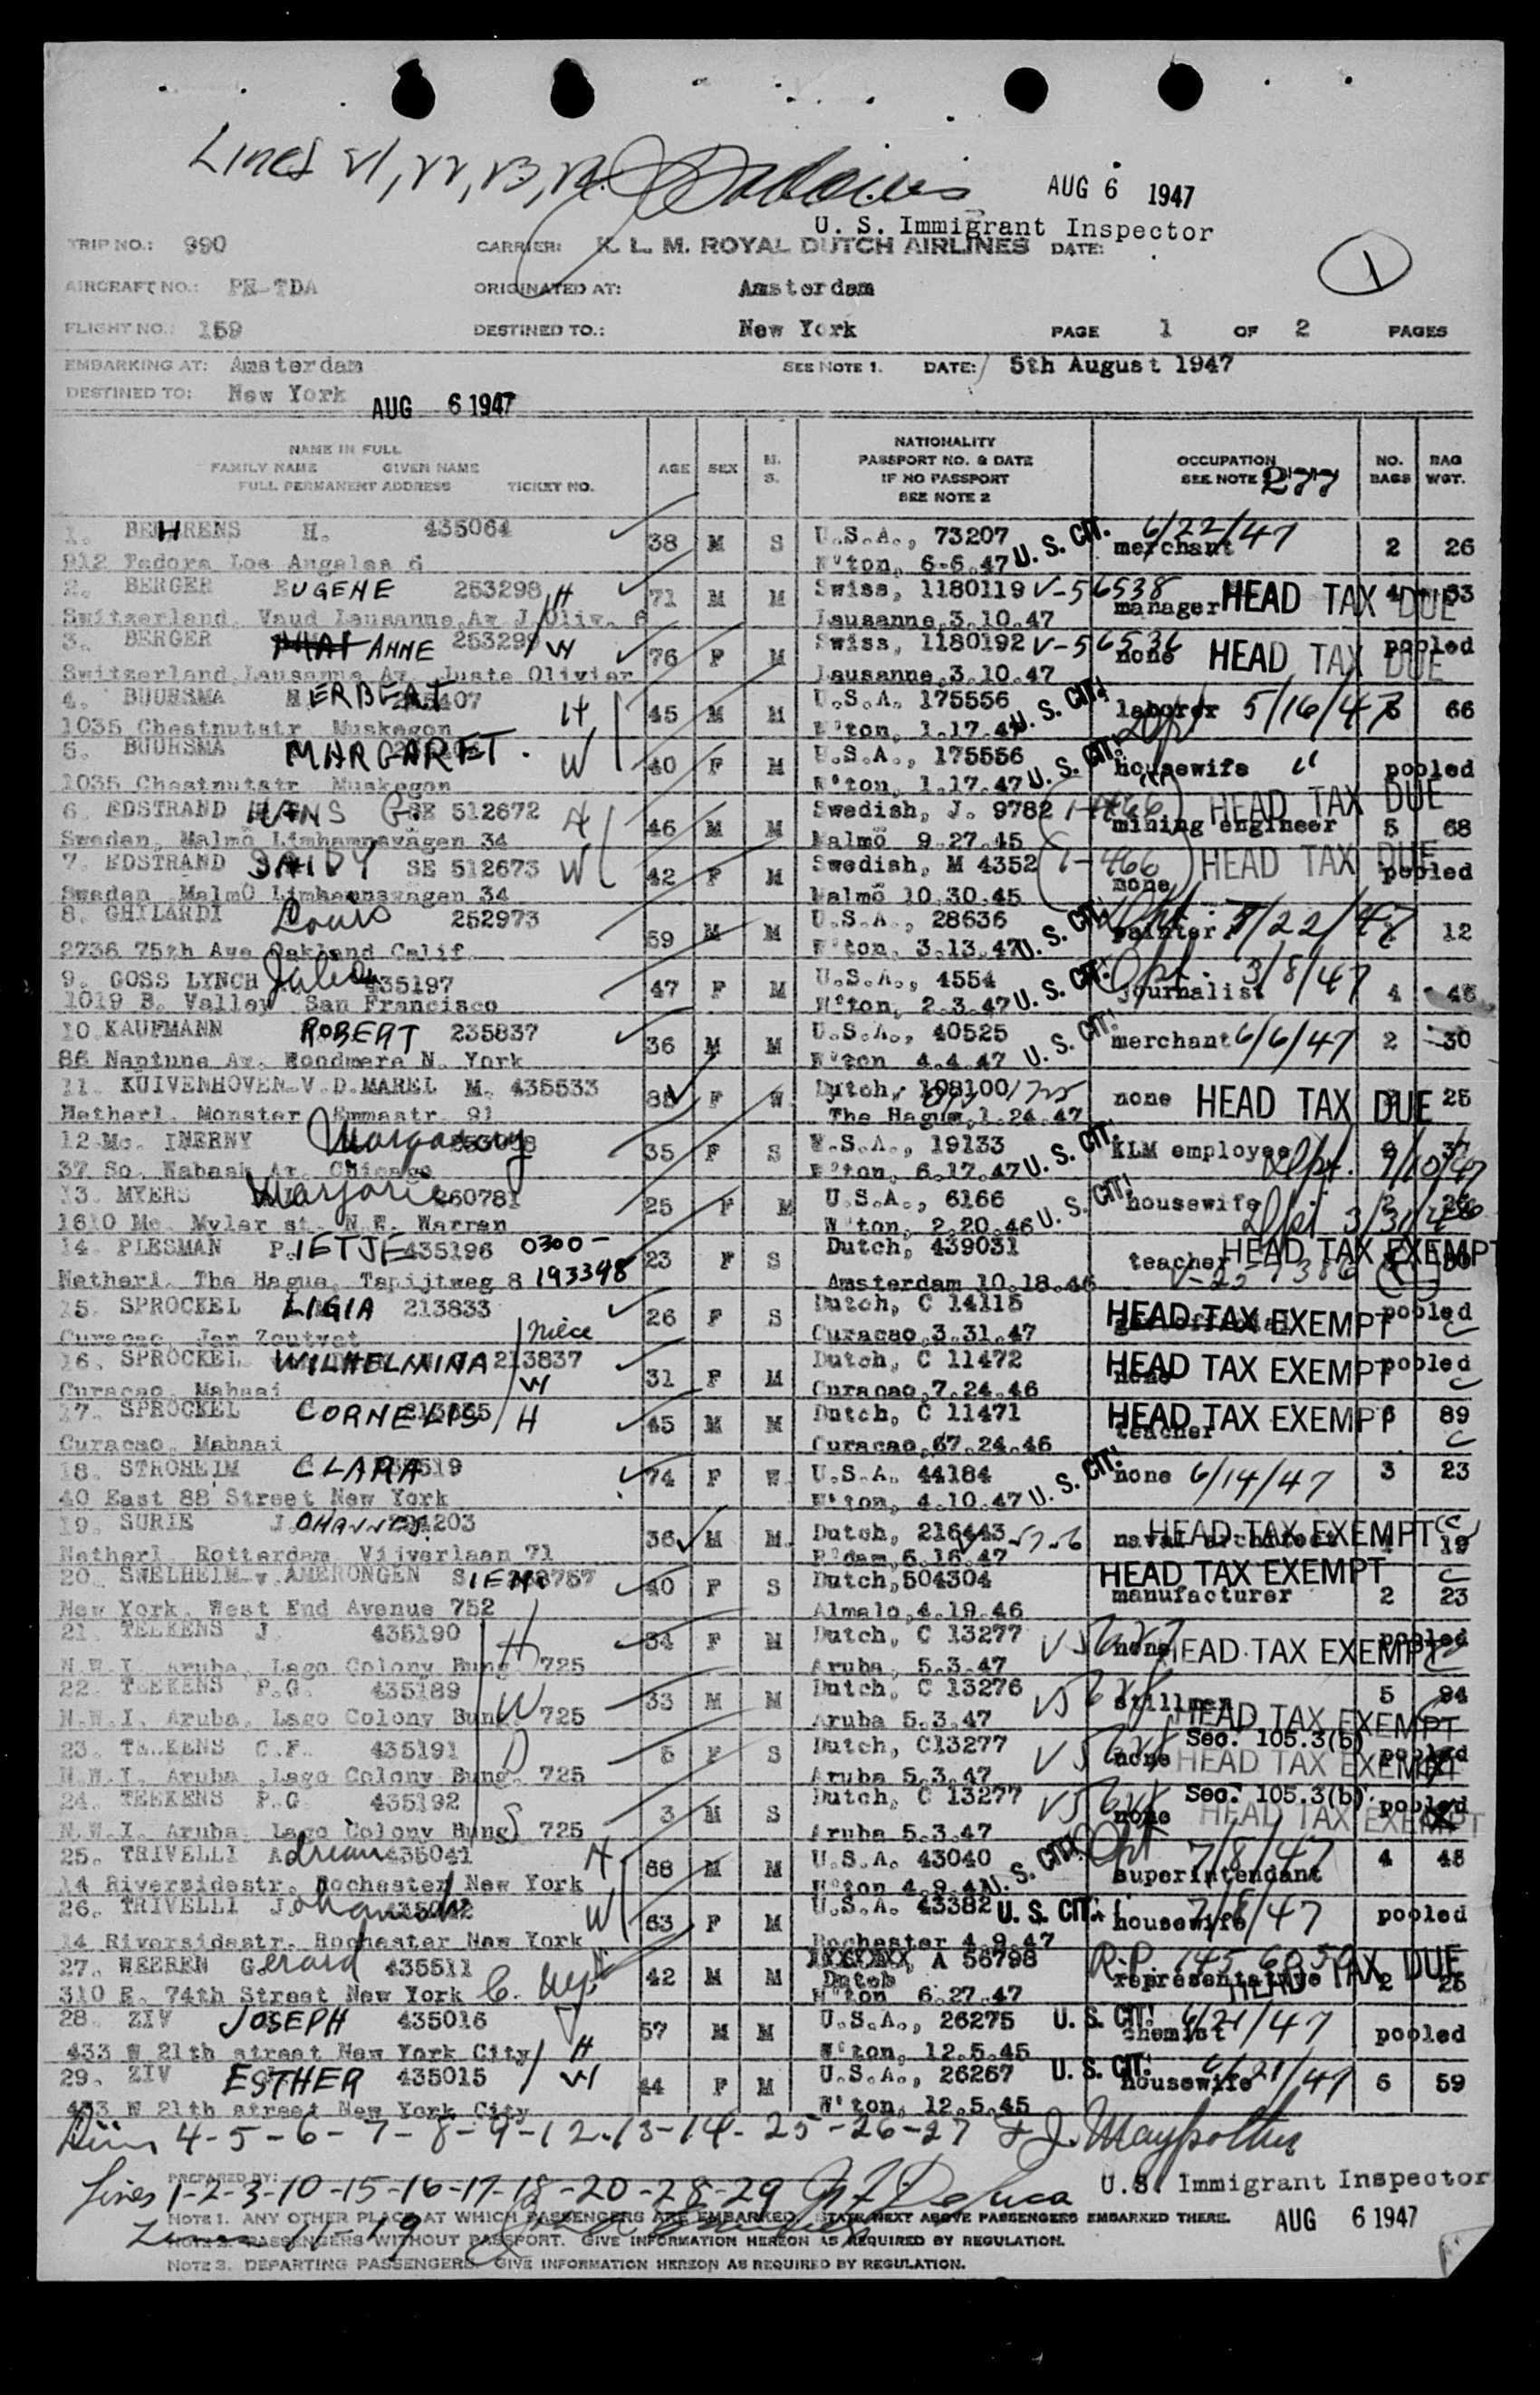 Lines 21, 22, 23, 24.
AUG 6 1947
U. S. Immigrant Inspector
TRIP NO.: 990 CARRIER: K. L. M. ROYAL DUTCH AIRLINES DATE:
1
AIRCRAFT NO.: PH-TDA ORIGINATED AT: Amsterdam
FLIGHT NO.: 159 DESTINED TO.: New York PAGE 1 OF 2 PAGES
EMBARKING AT: Amsterdam SEE NOTE 1. DATE: 5th August 1947
DESTINED TO: New York AUG 6 1947
NAME IN FULL
FAMILY NAME GIVEN NAME
FULL PERMANENT ADDRESS TICKET NO.
AGE SEX M. S.
NATIONALITY
PASSPORT NO. & DATE
IF NO PASSPORT
SEE NOTE 2
OCCUPATION
SEE NOTE 277
NO. BAGS
BAG WGT.
1. BEHRENS H. 435064 38 M S U.S.A., 73207 U. S. CIT. 6/22/47 merchant 2 26
912 Fedora Los Angeles 6 W'ton, 6-6.47
2. BERGER EUGENE 253298 H 71 M M Swiss, 1180119 V-56538 manager HEAD TAX DUE 4 53
Switzerland, Vaud Lausanne, Av J. Oliv. 6 Lausanne, 3.10.47
3. BERGER ANNE 253299 W 76 F M Swiss, 1180192 V-56536 none HEAD TAX DUE pooled
Switzerland, Lausanne Av. Juste Olivier Lausanne, 3.10.47
4. BUURSMA HERBERT H 45 M M U.S.A. 175556 U. S. CIT! laborer 5/16/47 66
1035 Chestnutstr Muskegon W'ton, 1.17.47
5. BUURSMA MARGARET. W 40 F M U.S.A., 175556 U. S. CIT! housewife " pooled
1035 Chestnutstr Muskegon W'ton, 1.17.47
6. EDSTRAND HANS G. SE 512672 H 46 M M Swedish, J. 9782 1-466 mining engineer HEAD TAX DUE 5 68
Sweden, Malmö Limhamnsvägen 34 Malmö 9.27.45
7. EDSTRAND SAIDY SE 512673 W 42 F M Swedish, M 4352 1-466 none HEAD TAX DUE pooled
Sweden Malmö Limhamnsvägen 34 Malmö 10.30.45
8. GHILARDI Louis 252973 59 M M U.S.A., 28636 U. S. CIT. painter 12
2736 75th Ave Oakland Calif. W'ton, 3.13.47
9. GOSS LYNCH Julia 435197 47 F M U.S.A., 4554 U. S. CIT! journalist 3/8/47 4 46
1019 B. Valley San Francisco W'ton, 2.3.47
10. KAUFMANN ROBERT 235837 36 M M U.S.A., 40525 U. S. CIT! merchant 6/6/47 2 30
86 Neptune Av. Woodmere N. York W'ton 4.4.47
11. KUIVENHOVEN-V.D.MAREL M. 435533 F W Dutch, none HEAD TAX DUE 25
Netherl. Monster Emmastr. 91 The Hague, 1.24.47
12. Mc. INERNY Margaery 35 F S U.S.A., 19133 U. S. CIT! KLM employee 37
37 So. Wabash Av. Chicago W'ton, 6.17.47
13. MYERS Marjorie 260781 25 F M U.S.A., 6166 U. S. CIT! housewife
1610 Mc. Myler st. N.W. Warren W'ton, 2.20.46
14. PLESMAN PIETJE 435196 0300- 23 F S Dutch, 439031 teacher HEAD TAX EXEMPT
Netherl. The Hague, Tapijtweg 8 193398 Amsterdam 10.18.46
15. SPROCKEL LIGIA 213833 niece 26 F S Dutch, C 14115 HEAD TAX EXEMPT pooled
Curacao, Jan Zoutvat Curacao, 3.31.47
16. SPROCKEL WILHELMINA 213837 W 31 F M Dutch, C 11472 none HEAD TAX EXEMPT pooled
Curacao, Mahaai Curacao, 7.24.46
17. SPROCKEL CORNELIS H 45 M M Dutch, C 11471 teacher HEAD TAX EXEMPT 89
Curacao, Mahaai Curacao, 7.24.46
18. STROHEIM CLARA 74 F W U.S.A. 44184 U. S. CIT! none 6/14/47 3 23
40 East 88 Street New York W'ton, 4.10.47
19. SURIE JOHANNES 36 M M Dutch, 216443 naval architect HEAD TAX EXEMPT 19
Netherl. Rotterdam, Vijverlaan 71 R'dam, 6.16.47
20. SNELHEIM-v.AMERONGEN SIENA 40 F S Dutch, 504304 manufacturer HEAD TAX EXEMPT 2 23
New York, West End Avenue 752 Almelo, 4.19.46
21. TEEKENS J. 435190 H 34 F M Dutch, C 13277 none HEAD TAX EXEMPT pooled
N.W.I. Aruba, Lago Colony Bung. 725 Aruba, 5.3.47
22. TEEKENS P.G. 435189 W 33 M M Dutch, C 13276 stillman HEAD TAX EXEMPT 5 94
N.W.I. Aruba, Lago Colony Bung. 725 Aruba 5.3.47
23. TEEKENS C.F. 435191 D 5 F S Dutch, C13277 none Sec. 105.3(b) HEAD TAX EXEMPT pooled
N.W.I. Aruba, Lago Colony Bung. 725 Aruba 5.3.47
24. TEEKENS P.G 435192 S 3 M S Dutch, C 13277 none Sec. 105.3(b) HEAD TAX EXEMPT pooled
N.W.I. Aruba, Lago Colony Bung 725 Aruba 5.3.47
25. TRIVELLI Adrian 435041 H 68 M M U.S.A. 43040 U. S. CIT! superintendant 7/8/47 4 45
14 Riversidestr. Rochester New York W'ton 4.9.47
26. TRIVELLI Johannah W 63 F M U.S.A. 43382 U. S. CIT. housewife 7/8/47 pooled
14 Riversidestr. Rochester New York Rochester 4.9.47
27. WEEREN Gerard 435511 42 M M Dutch A 56798 R.P. representative HEAD TAX DUE 2 25
310 E. 74th Street New York W'ton 6.27.47
28. ZIV JOSEPH 435016 H 57 M M U.S.A., 26275 U. S. CIT! chemist 6/21/47 pooled
433 W 21th street New York City W'ton, 12.5.45
29. ZIV ESTHER 435015 W 44 F M U.S.A., 26267 U. S. CIT. housewife 6/21/47 6 59
433 W 21th street New York City W'ton, 12.5.45
4-5-6-7-8-9-12-13-14-25-26-27
PREPARED BY: U.S. Immigrant Inspector
Lines 1-2-3-10-15-16-17-18-20-28-29
NOTE 1. ANY OTHER PLACE AT WHICH PASSENGERS ARE EMBARKED, STATE NEXT ABOVE PASSENGERS EMBARKED THERE. AUG 6 1947
Lines 11-19
NOTE 2. PASSENGERS WITHOUT PASSPORT. GIVE INFORMATION HEREON AS REQUIRED BY REGULATION.
NOTE 3. DEPARTING PASSENGERS GIVE INFORMATION HEREON AS REQUIRED BY REGULATION.